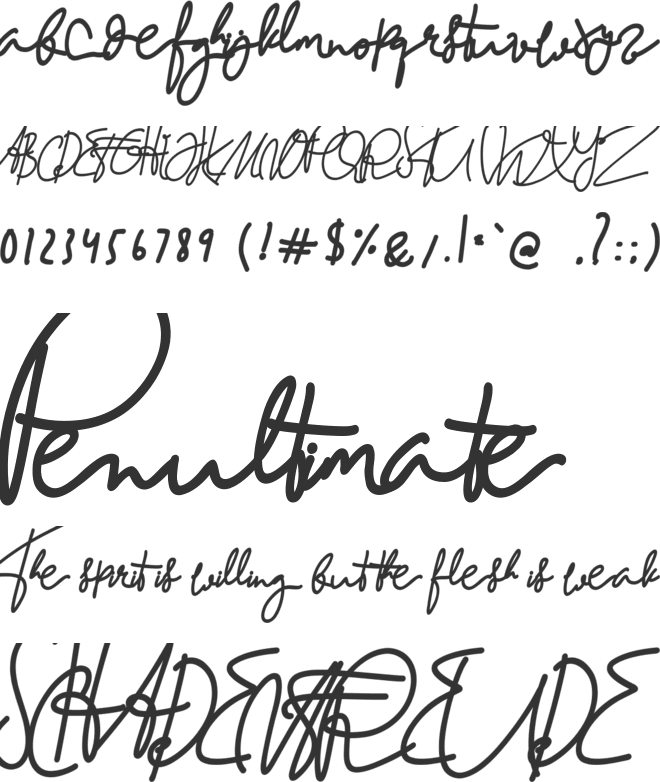 abcdefghijklmnopqrstuvwxyz
ABCDEFGHIJKLMNOPQRSTUVWXYZ
0123456789 (!#$%&/.|*`@ .?:;)
Penultimate
The spirit is willing but the flesh is weak
SCHADENFREUDE